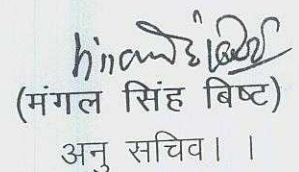 (मंगल सिंह बिष्ट)
अनु सचिव। ।